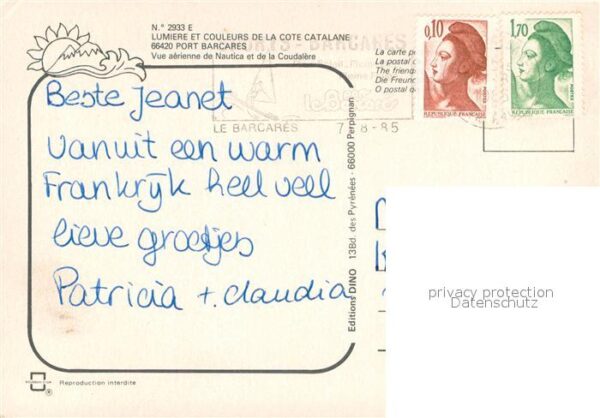 N.° 2933 E
LUMIERE ET COULEURS DE LA COTE CATALANE
66420 PORT BARCARES
Vue aérienne de Nautica et de la Coudalère
BARCARES
LE BARCARES 7-8-85
La carte p
La postal
The friend
Die Freun
O postal q
0,10
REPUBLIQUE FRANÇAISE
POSTES
1,70
REPUBLIQUE FRANÇAISE
POSTES
Beste Jeanet
vanuit een warm
Frankrijk heel veel
lieve groetjes
Patricia + claudia
Editions DINO 13Bd. des Pyrénées - 66000 Perpignan
privacy protection
Datenschutz
Reproduction interdite